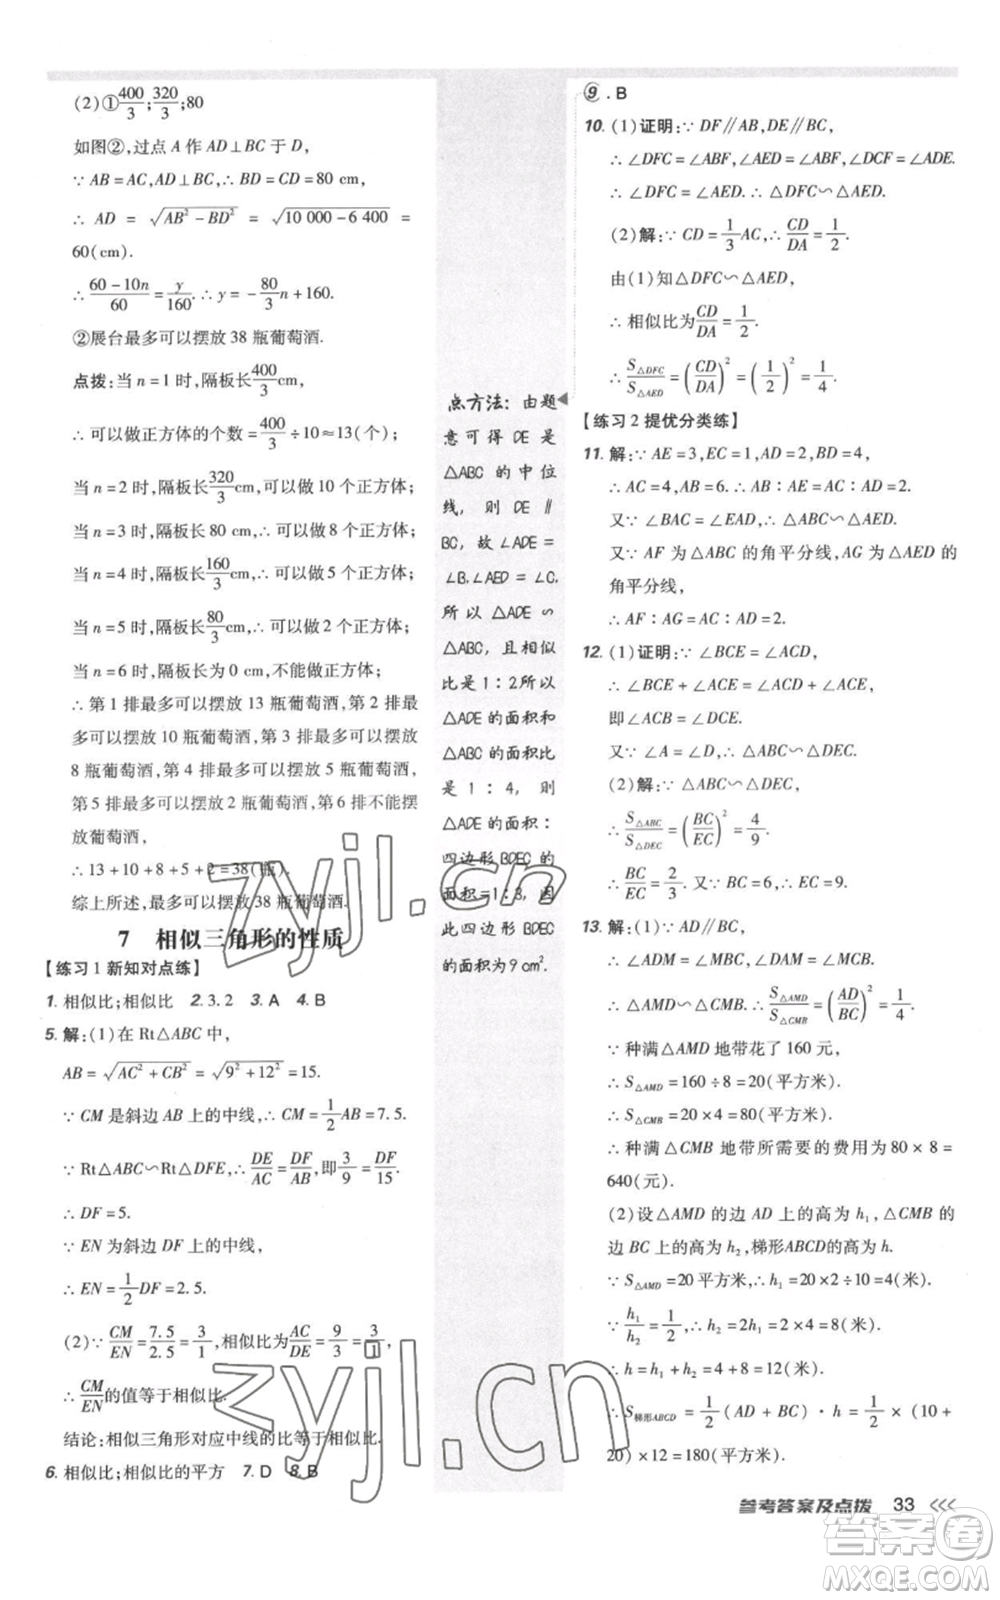 (2)①400/3;320/3;80
如图②,过点 A 作 AD⊥BC 于 D,
∵ AB = AC,AD⊥BC,∴ BD = CD = 80 cm,
∴ AD = √(AB² − BD²) = √(10 000 − 6 400) =
60(cm).
∴ (60 − 10n)/60 = y/160. ∴ y = −80/3 n + 160.
②展台最多可以摆放 38 瓶葡萄酒.
点拨:当 n = 1 时,隔板长 400/3 cm,
∴ 可以做正方体的个数 = 400/3 ÷ 10 ≈ 13(个);
当 n = 2 时,隔板长 320/3,可以做 10 个正方体;
当 n = 3 时,隔板长 80 cm,∴ 可以做 8 个正方体;
当 n = 4 时,隔板长 160/3 cm,∴ 可以做 5 个正方体;
当 n = 5 时,隔板长 80/3 cm,∴ 可以做 2 个正方体;
当 n = 6 时,隔板长为 0 cm,不能做正方体;
∴ 第 1 排最多可以摆放 13 瓶葡萄酒,第 2 排最
多可以摆放 10 瓶葡萄酒,第 3 排最多可以摆放
8 瓶葡萄酒,第 4 排最多可以摆放 5 瓶葡萄酒,
第 5 排最多可以摆放 2 瓶葡萄酒,第 6 排不能摆
放葡萄酒,
∴ 13 + 10 + 8 + 5 + 2 = 38(瓶).
综上所述,最多可以摆放 38 瓶葡萄酒.
7 相似三角形的性质
【练习 1 新知对点练】
1. 相似比;相似比 2. 3. 2 3. A 4. B
5. 解:(1)在 Rt△ABC 中,
AB = √(AC² + CB²) = √(9² + 12²) = 15.
∵ CM 是斜边 AB 上的中线,∴ CM = 1/2 AB = 7. 5.
∵ Rt△ABC∽Rt△DFE,∴ DE/AC = DF/AB,即 3/9 = DF/15.
∴ DF = 5.
∵ EN 为斜边 DF 上的中线,
∴ EN = 1/2 DF = 2. 5.
(2)∵ CM/EN = 7. 5/2. 5 = 3/1,相似比为 AC/DE = 9/3 = 3/1,
∴ CM/EN 的值等于相似比.
结论:相似三角形对应中线的比等于相似比.
6. 相似比;相似比的平方 7. D 8. B
点方法:由题
意可得 DE 是
△ABC 的中位
线,则 DE ∥
BC,故 ∠ADE =
∠B,∠AED = ∠C.
所以 △ADE ∽
△ABC,且相似
比是 1:2所以
△ADE 的面积和
△ABC 的面积比
是 1:4,则
△ADE 的面积:
四边形 BDEC 的
面积=1:3,因
此四边形 BDEC
的面积为 9 cm².
9. B
10. (1)证明:∵ DF∥AB,DE∥BC,
∴ ∠DFC = ∠ABF,∠AED = ∠ABF,∠DCF = ∠ADE.
∴ ∠DFC = ∠AED. ∴ △DFC∽△AED.
(2)解:∵ CD = 1/3 AC,∴ CD/DA = 1/2.
由(1)知△DFC∽△AED.
∴ 相似比为 CD/DA = 1/2.
∴ S△DFC/S△AED = (CD/DA)² = (1/2)² = 1/4.
【练习 2 提优分类练】
11. 解:∵ AE = 3,EC = 1,AD = 2,BD = 4,
∴ AC = 4,AB = 6. ∴ AB∶AE = AC∶AD = 2.
又∵ ∠BAC = ∠EAD,∴ △ABC∽△AED.
又∵ AF 为△ABC 的角平分线,AG 为△AED 的
角平分线,
∴ AF∶AG = AC∶AD = 2.
12. (1)证明:∵ ∠BCE = ∠ACD,
∴ ∠BCE + ∠ACE = ∠ACD + ∠ACE,
即∠ACB = ∠DCE.
又∵ ∠A = ∠D,∴ △ABC∽△DEC.
(2)解:∵ △ABC∽△DEC,
∴ S△ABC/S△DEC = (BC/EC)² = 4/9.
∴ BC/EC = 2/3. 又∵ BC = 6,∴ EC = 9.
13. 解:(1)∵ AD∥BC,
∴ ∠ADM = ∠MBC,∠DAM = ∠MCB.
∴ △AMD∽△CMB. ∴ S△AMD/S△CMB = (AD/BC)² = 1/4.
∵ 种满△AMD 地带花了 160 元,
∴ S△AMD = 160 ÷ 8 = 20(平方米).
∴ S△CMB = 20 × 4 = 80(平方米).
∴ 种满△CMB 地带所需要的费用为 80 × 8 =
640(元).
(2)设△AMD 的边 AD 上的高为 h₁,△CMB 的
边 BC 上的高为 h₂,梯形ABCD的高为 h.
∵ S△AMD = 20 平方米,∴ h₁ = 20 × 2 ÷ 10 = 4(米).
∵ h₁/h₂ = 1/2,∴ h₂ = 2h₁ = 2 × 4 = 8(米).
∴ h = h₁ + h₂ = 4 + 8 = 12(米).
∴ S梯形ABCD = 1/2 (AD + BC) · h = 1/2 × (10 +
20) × 12 = 180(平方米).
参考答案及点拨 33
zyjl.cn
zyjl.cn
答案卷
MXQE.COM